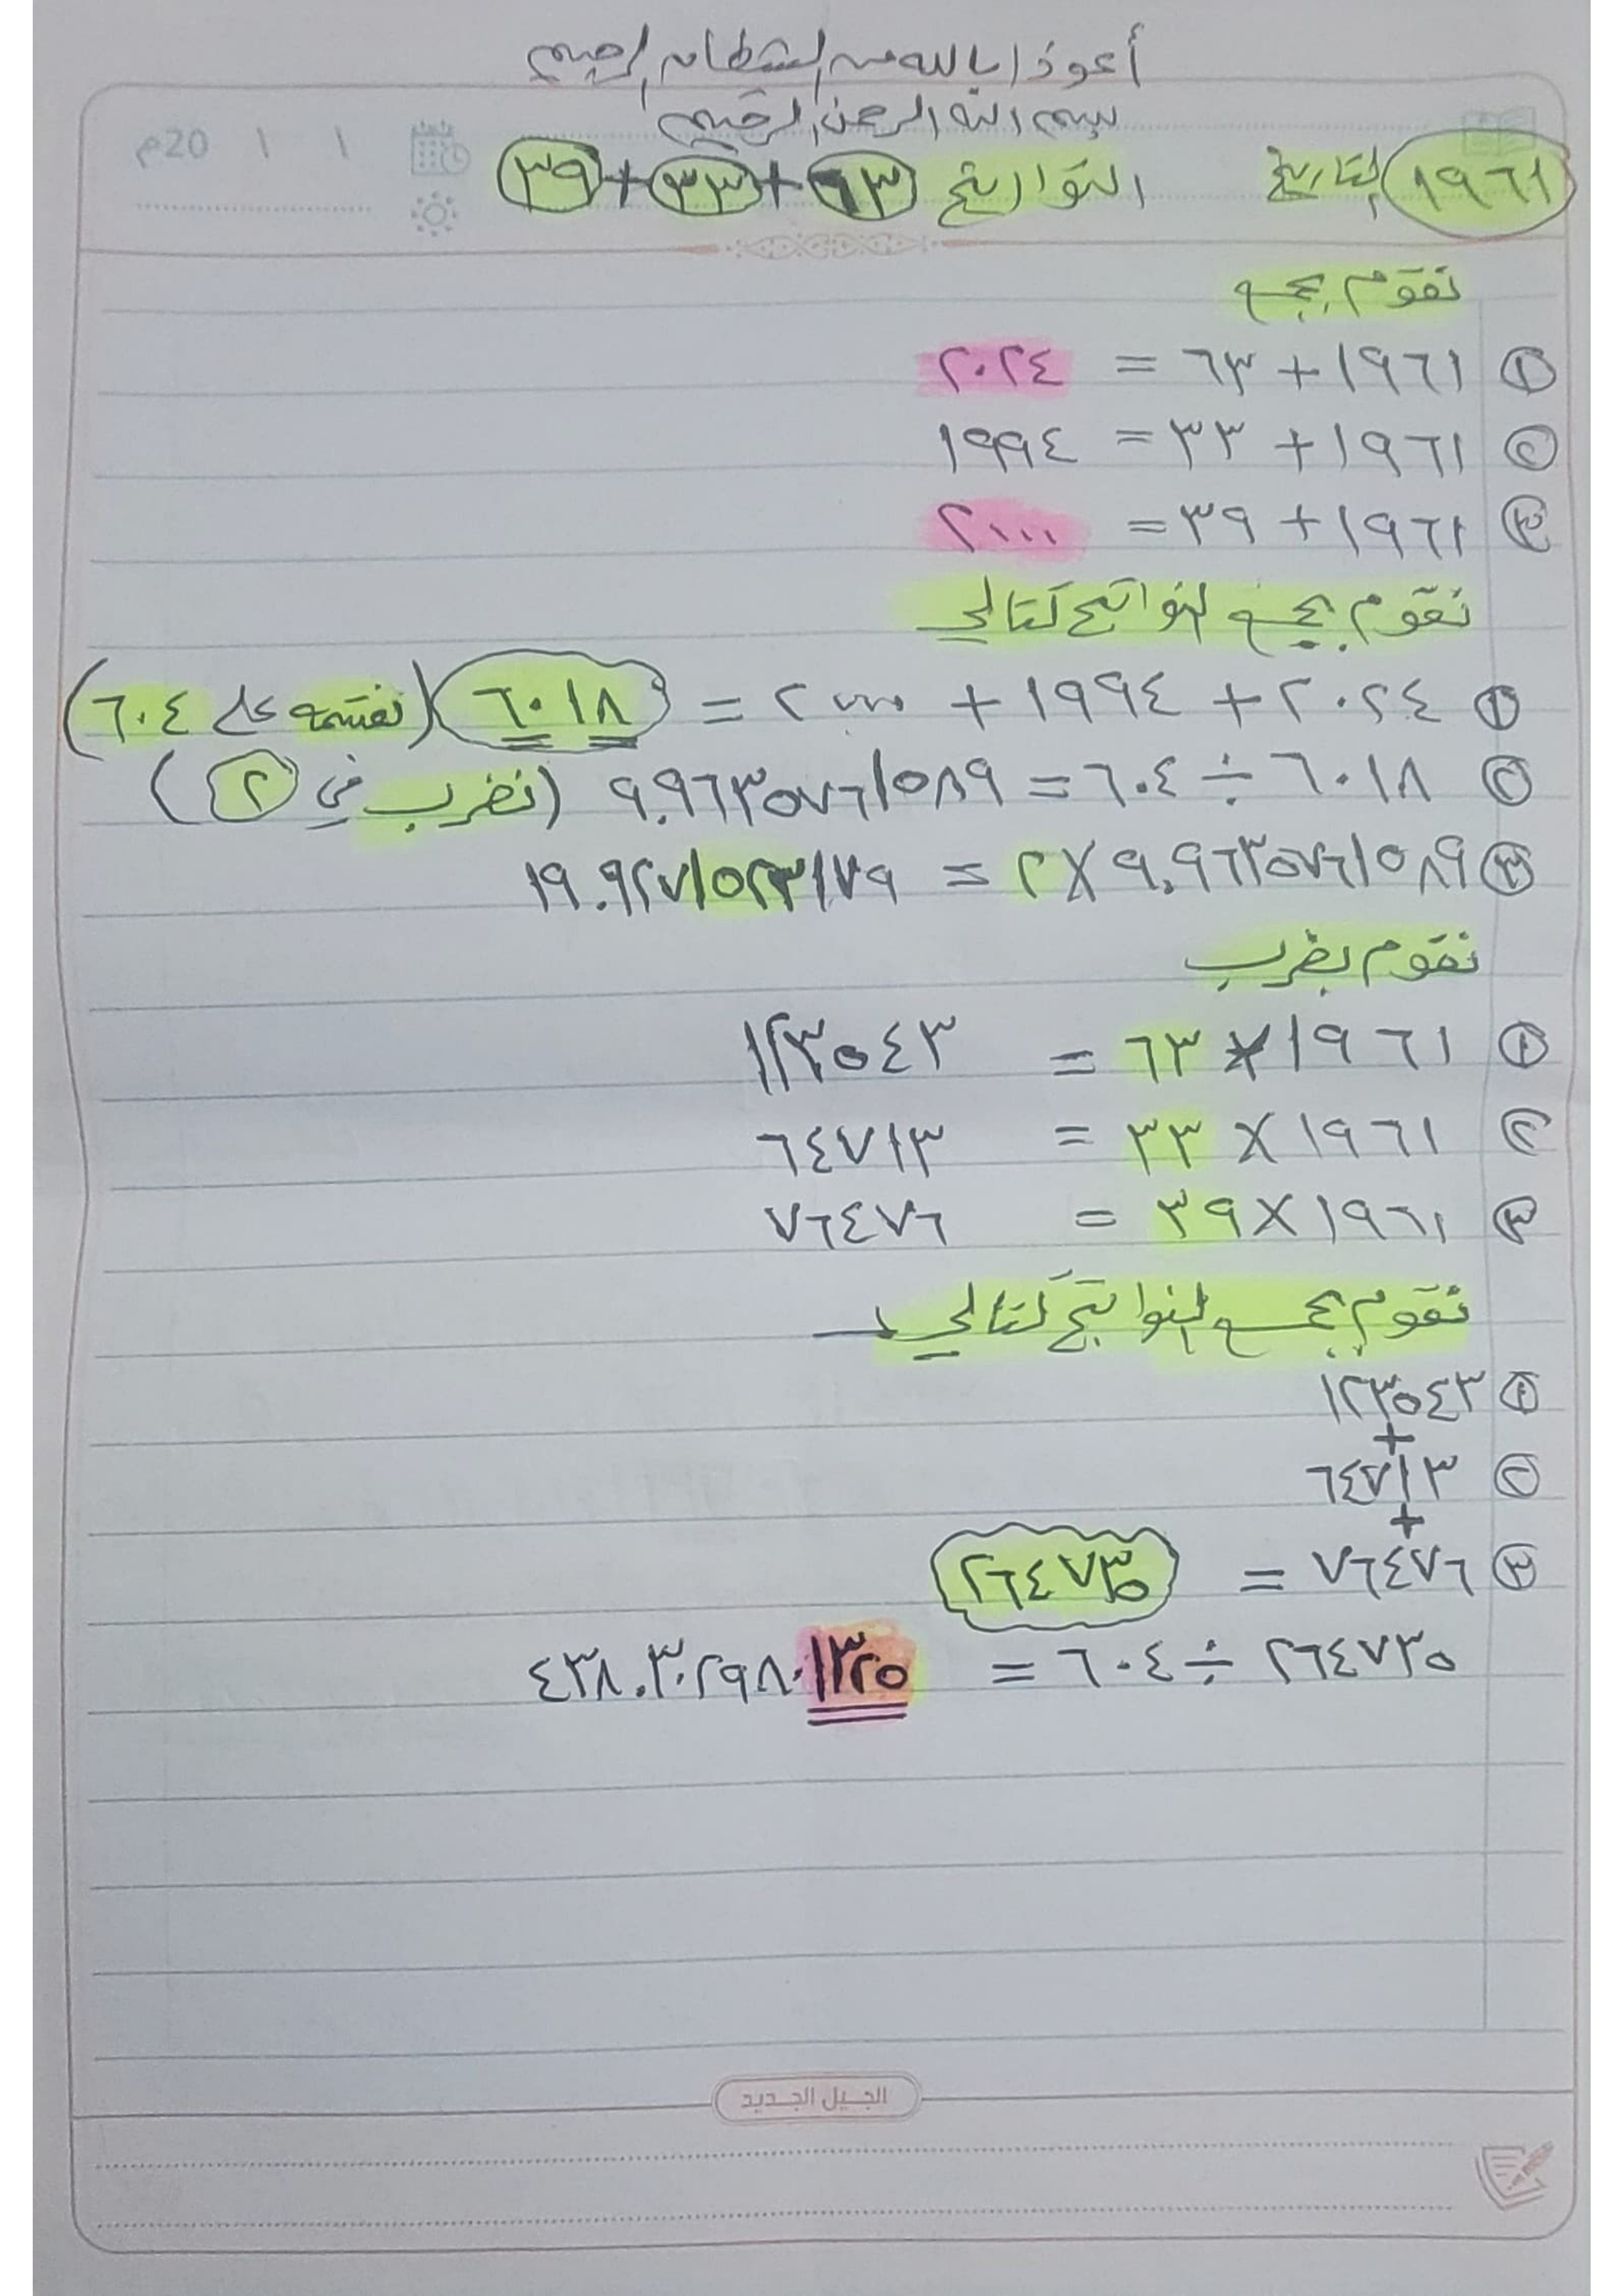 أعوذ بالله من الشيطان الرجيم
بسم الله الرحمن الرحيم
١ ١ 20م
١٩٦١ التاريخ التواريخ ٦٣ + ٣٣ + ٣٩
نقوم بجمع
١ ١٩٦١ + ٦٣ = ٢٠٢٤
٢ ١٩٦١ + ٣٣ = ١٩٩٤
٣ ١٩٦١ + ٣٩ = ٢٠٠٠
نقوم بجمع النواتج كتالي
١ ٢٠٢٤ + ١٩٩٤ + ٢٠٠٠ = ٦٠١٨ (نقسمه على ٦٠٤)
٢ ٦٠١٨ ÷ ٦٠٤ = ٩.٩٦٣٥٧٦١٥٨٩ (نضرب في ٢)
٣ ٩.٩٦٣٥٧٦١٥٨٩ × ٢ = ١٩.٩٢٧١٥٢٣١٧٩
نقوم بضرب
١ ١٩٦١ × ٦٣ = ١٢٣٥٤٣
٢ ١٩٦١ × ٣٣ = ٦٤٧١٣
٣ ١٩٦١ × ٣٩ = ٧٦٤٧٦
نقوم بجمع النواتج كتالي
١ ١٢٣٥٤٣
+
٢ ٦٤٧١٣
+
٣ ٧٦٤٧٦ = ٢٦٤٧٣٥
٢٦٤٧٣٥ ÷ ٦٠٤ = ٤٣٨.٣٠٢٩٨٠١٣٢٥
الجيل الجديد